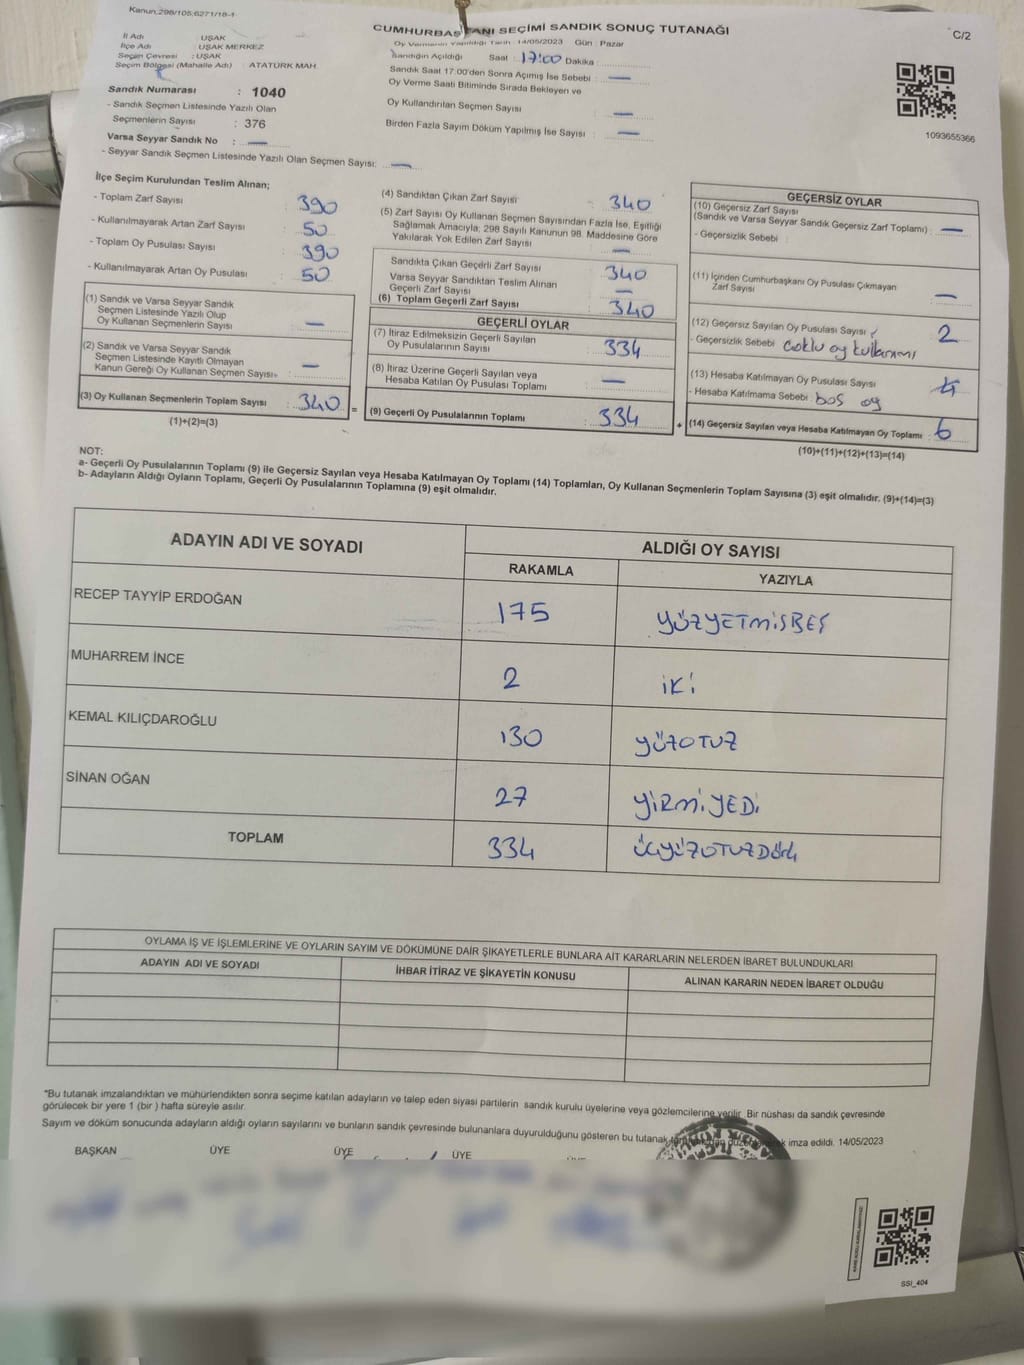 Kanun:298/105;6271/18-1
CUMHURBAŞKANI SEÇİMİ SANDIK SONUÇ TUTANAĞI
C/2
Oy Vermenin Yapıldığı Tarih : 14/05/2023 Gün : Pazar
İl Adı : UŞAK
İlçe Adı : UŞAK MERKEZ
Seçim Çevresi : UŞAK
Seçim Bölgesi (Mahalle Adı) : ATATÜRK MAH.
Sandığın Açıldığı Saat : 17:00 Dakika :
Sandık Saat 17:00'den Sonra Açımış İse Sebebi : —
Oy Verme Saati Bitiminde Sırada Bekleyen ve
Oy Kullandırılan Seçmen Sayısı : —
Birden Fazla Sayım Döküm Yapılmış İse Sayısı : —
1093655366
Sandık Numarası : 1040
- Sandık Seçmen Listesinde Yazılı Olan
Seçmenlerin Sayısı : 376
Varsa Seyyar Sandık No : —
- Seyyar Sandık Seçmen Listesinde Yazılı Olan Seçmen Sayısı: —
İlçe Seçim Kurulundan Teslim Alınan;
- Toplam Zarf Sayısı : 390
- Kullanılmayarak Artan Zarf Sayısı : 50
- Toplam Oy Pusulası Sayısı : 390
- Kullanılmayarak Artan Oy Pusulası : 50
(1) Sandık ve Varsa Seyyar Sandık
Seçmen Listesinde Yazılı Olup
Oy Kullanan Seçmenlerin Sayısı : —
(2) Sandık ve Varsa Seyyar Sandık
Seçmen Listesinde Kayıtlı Olmayan
Kanun Gereği Oy Kullanan Seçmen Sayısı: —
(3) Oy Kullanan Seçmenlerin Toplam Sayısı : 340 =
(1)+(2)=(3)
(4) Sandıktan Çıkan Zarf Sayısı : 340
(5) Zarf Sayısı Oy Kullanan Seçmen Sayısından Fazla İse, Eşitliği
Sağlamak Amacıyla, 298 Sayılı Kanunun 98. Maddesine Göre
Yakılarak Yok Edilen Zarf Sayısı : —
Sandıkta Çıkan Geçerli Zarf Sayısı : 340
Varsa Seyyar Sandıktan Teslim Alınan
Geçerli Zarf Sayısı : —
(6) Toplam Geçerli Zarf Sayısı : 340
GEÇERLİ OYLAR
(7) İtiraz Edilmeksizin Geçerli Sayılan
Oy Pusulalarının Sayısı : 334
(8) İtiraz Üzerine Geçerli Sayılan veya
Hesaba Katılan Oy Pusulası Toplamı : —
(9) Geçerli Oy Pusulalarının Toplamı : 334 +
GEÇERSİZ OYLAR
(10) Geçersiz Zarf Sayısı
(Sandık ve Varsa Seyyar Sandık Geçersiz Zarf Toplamı) : —
- Geçersizlik Sebebi :
(11) İçinden Cumhurbaşkanı Oy Pusulası Çıkmayan
Zarf Sayısı : —
(12) Geçersiz Sayılan Oy Pusulası Sayısı : 2
- Geçersizlik Sebebi : Çoklu oy kullanımı
(13) Hesaba Katılmayan Oy Pusulası Sayısı : 4
- Hesaba Katılmama Sebebi : boş oy
(14) Geçersiz Sayılan veya Hesaba Katılmayan Oy Toplamı : 6
(10)+(11)+(12)+(13)=(14)
NOT:
a- Geçerli Oy Pusulalarının Toplamı (9) ile Geçersiz Sayılan veya Hesaba Katılmayan Oy Toplamı (14) Toplamları, Oy Kullanan Seçmenlerin Toplam Sayısına (3) eşit olmalıdır. (9)+(14)=(3)
b- Adayların Aldığı Oyların Toplamı, Geçerli Oy Pusulalarının Toplamına (9) eşit olmalıdır.
ADAYIN ADI VE SOYADI
ALDIĞI OY SAYISI
RAKAMLA
YAZIYLA
RECEP TAYYİP ERDOĞAN 175 YÜZYETMİSBEŞ
MUHARREM İNCE 2 İKİ
KEMAL KILIÇDAROĞLU 130 YÜZOTUZ
SİNAN OĞAN 27 YİRMİYEDİ
TOPLAM 334 ÜÇYÜZOTUZDÖRT
OYLAMA İŞ VE İŞLEMLERİNE VE OYLARIN SAYIM VE DÖKÜMÜNE DAİR ŞİKAYETLERLE BUNLARA AİT KARARLARIN NELERDEN İBARET BULUNDUKLARI
ADAYIN ADI VE SOYADI
İHBAR İTİRAZ VE ŞİKAYETİN KONUSU
ALINAN KARARIN NEDEN İBARET OLDUĞU
*Bu tutanak imzalandıktan ve mühürlendikten sonra seçime katılan adayların ve talep eden siyasi partilerin sandık kurulu üyelerine veya gözlemcilerine verilir. Bir nüshası da sandık çevresinde
görülecek bir yere 1 (bir ) hafta süreyle asılır.
Sayım ve döküm sonucunda adayların aldığı oyların sayılarını ve bunların sandık çevresinde bulunanlara duyurulduğunu gösteren bu tutanak imza edildi. 14/05/2023
BAŞKAN ÜYE ÜYE ÜYE
SSI_404